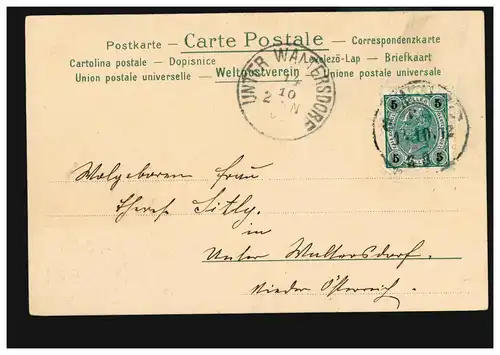 Postkarte — Carte Postale — Correspondenzkarte
Cartolina postale — Dopisnice — Levelező-Lap — Briefkaart
Union postale universelle — Weltpostverein — Unione postale universale
UNTER WALTERSDORF
14
10
2 N
5 5
5 5
Wolgeboren Frau
Theres Sitly.
in
Unter Waltersdorf.
Nieder Österreich.